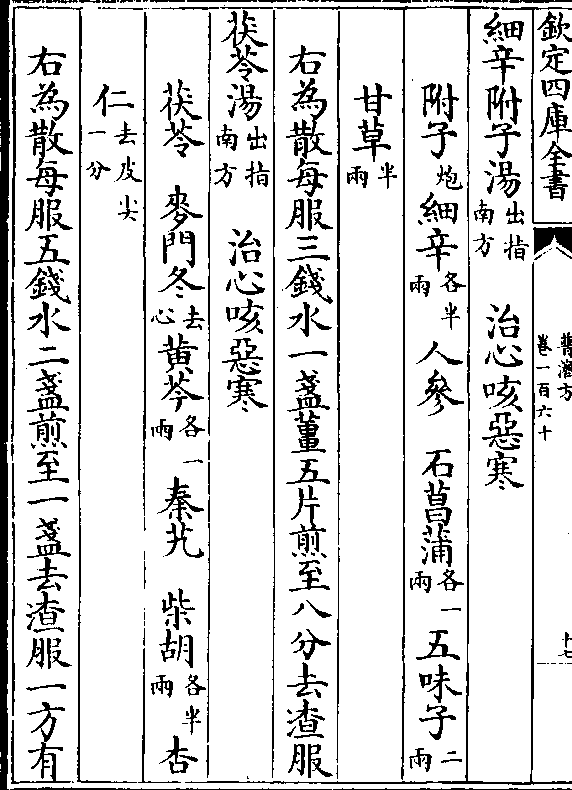 欽定四庫全書
普濟方
卷一百六十
十七
細辛附子湯出指南方 治心咳惡寒
附子炮 細辛各半兩 人參 石菖蒲各一兩 五味子二兩
甘草半兩
右為散每服三錢水一盞薑五片煎至八分去渣服
茯苓湯出指南方 治心咳惡寒
茯苓 麥門冬去心 黃芩各一兩 秦艽 柴胡各半兩 杏
仁去皮尖一分
右為散每服五錢水二盞煎至一盞去渣服一方有